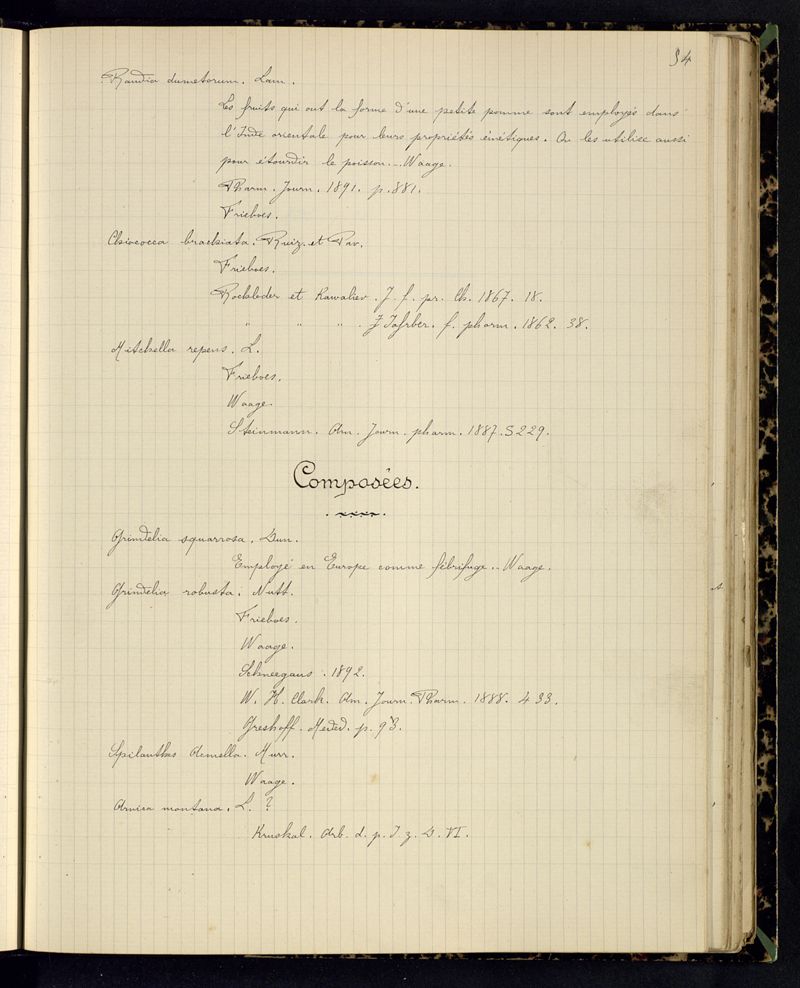 34
Randia dumetorum. Lam.
Les fruits qui ont la forme d'une petite pomme sont employés dans
l'Inde orientale pour leurs propriétés émétiques. On les utilise aussi
pour étourdir le poisson. - Waage.
Pharm. Journ. 1891. p. 881.
Frieboes.
Chiococca brachiata. Ruiz. et Pav.
Frieboes.
Rochleder et Kawalier. J. f. pr. Ch. 1867. 18.
" " " . Jahrber. f. pharm. 1862. 38.
Mitchella repens. L.
Frieboes.
Waage
Steinmann. Am. Journ. pharm. 1887. S 229.
Composées.
Grindelia squarrosa. Dun.
Employé en Europe comme fébrifuge. - Waage.
Grindelia robusta. Nutt.
Frieboes.
Waage.
Schneegans. 1892.
W. H. Clark. Am. Journ. Pharm. 1888. 433.
Greshoff. Meded. p. 93.
Spilanthes Acmella. Murr.
Waage.
Arnica montana. L. ?
Kruskal. Arb. d. p. I. z. D. VI.